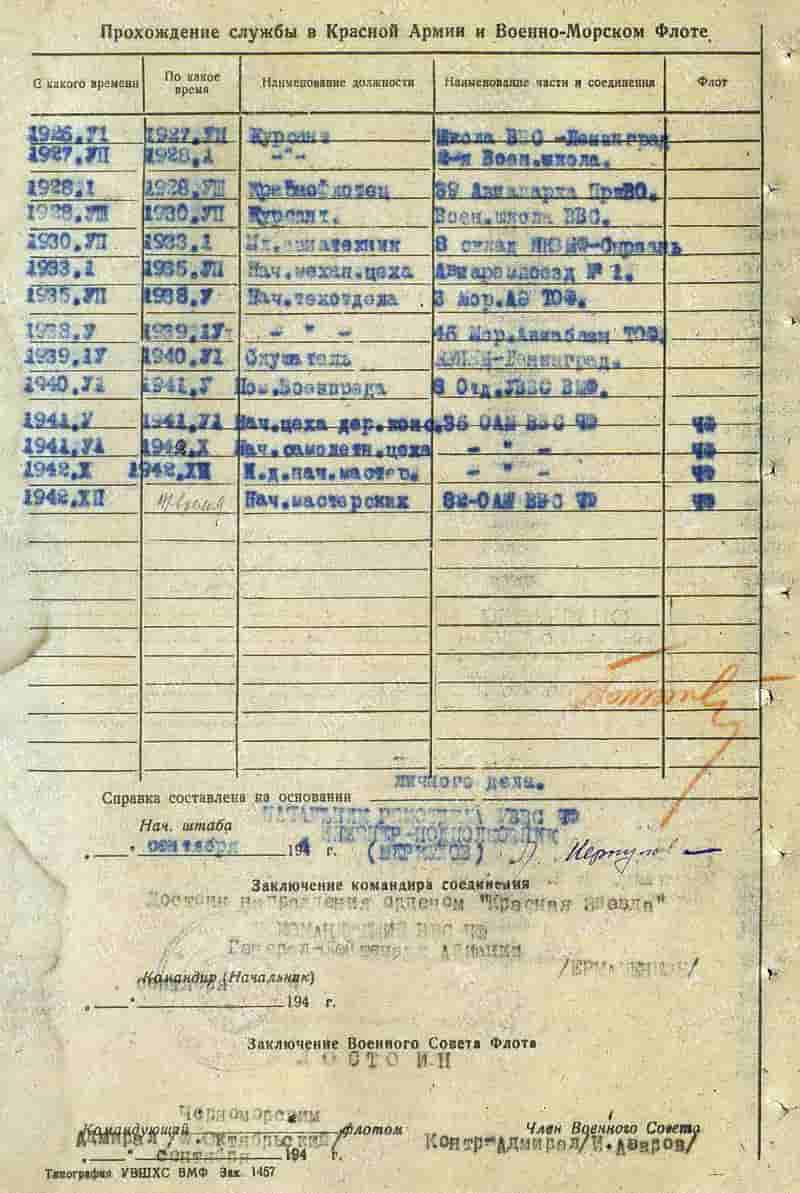 Прохождение службы в Красной Армии и Военно-Морском Флоте
С какого времени По какое время Наименование должности Наименование части и соединения Флот
1926.УІ 1927.УП Курсант Школа ВВС -Ленинград
1927.УП 1928.І -"- 2-я Воен.школа.
1928.І 1928.УШ Краснофлотец 39 Авиапарка ПриВО.
1928.УШ 1930.УП Курсант. Воен.школа ВВС.
1930.УП 1933.І Мл.авиатехник 8 склад
1933.І 1935.УП Нач.механ.цеха Авиаремпоезд № 1.
1935.УП 1938.У Нач.техотдела 3 Мор.АБ ТОФ.
1938.У 1939.ІУ - " - 45 Мор.Авиабаза ТОФ.
1939.ІУ 1940.УІ Слушатель
1940.УІ 1941.У Пом.Военпреда 8 Отд.УВВС ВМФ.
1941.У 1941.УІ Нач.цеха дер.конс. 36 САМ ВВС ЧФ ЧФ
1941.УІ 1942.Х Нач.самолетн.цеха - " - ЧФ
1942.Х 1942.ХП И.д.нач.мастер. - " - ЧФ
1942.ХП Нач.мастерских 82-САМ ВВС ЧФ ЧФ
личного дела.
Справка составлена на основании
Нач. штаба
„ “ сентября 194 г.
Заключение командира соединения
Достоин награждения орденом "Красная Звезда"
КОМАНДУЮЩИЙ ВВС ЧФ
Генерал-лейтенант авиации
/ЕРМАЧЕНКОВ/
Командир (Начальник)
„ “ 194 г.
Заключение Военного Совета Флота
ДОСТОИН
Черноморским
Командующий флотом Член Военного Совета
Адмирал /Ф.Октябрьский/ Контр-Адмирал/И.Азаров/
„ “ сентября 194 г.
Типография УВШХС ВМФ Зак. 1457